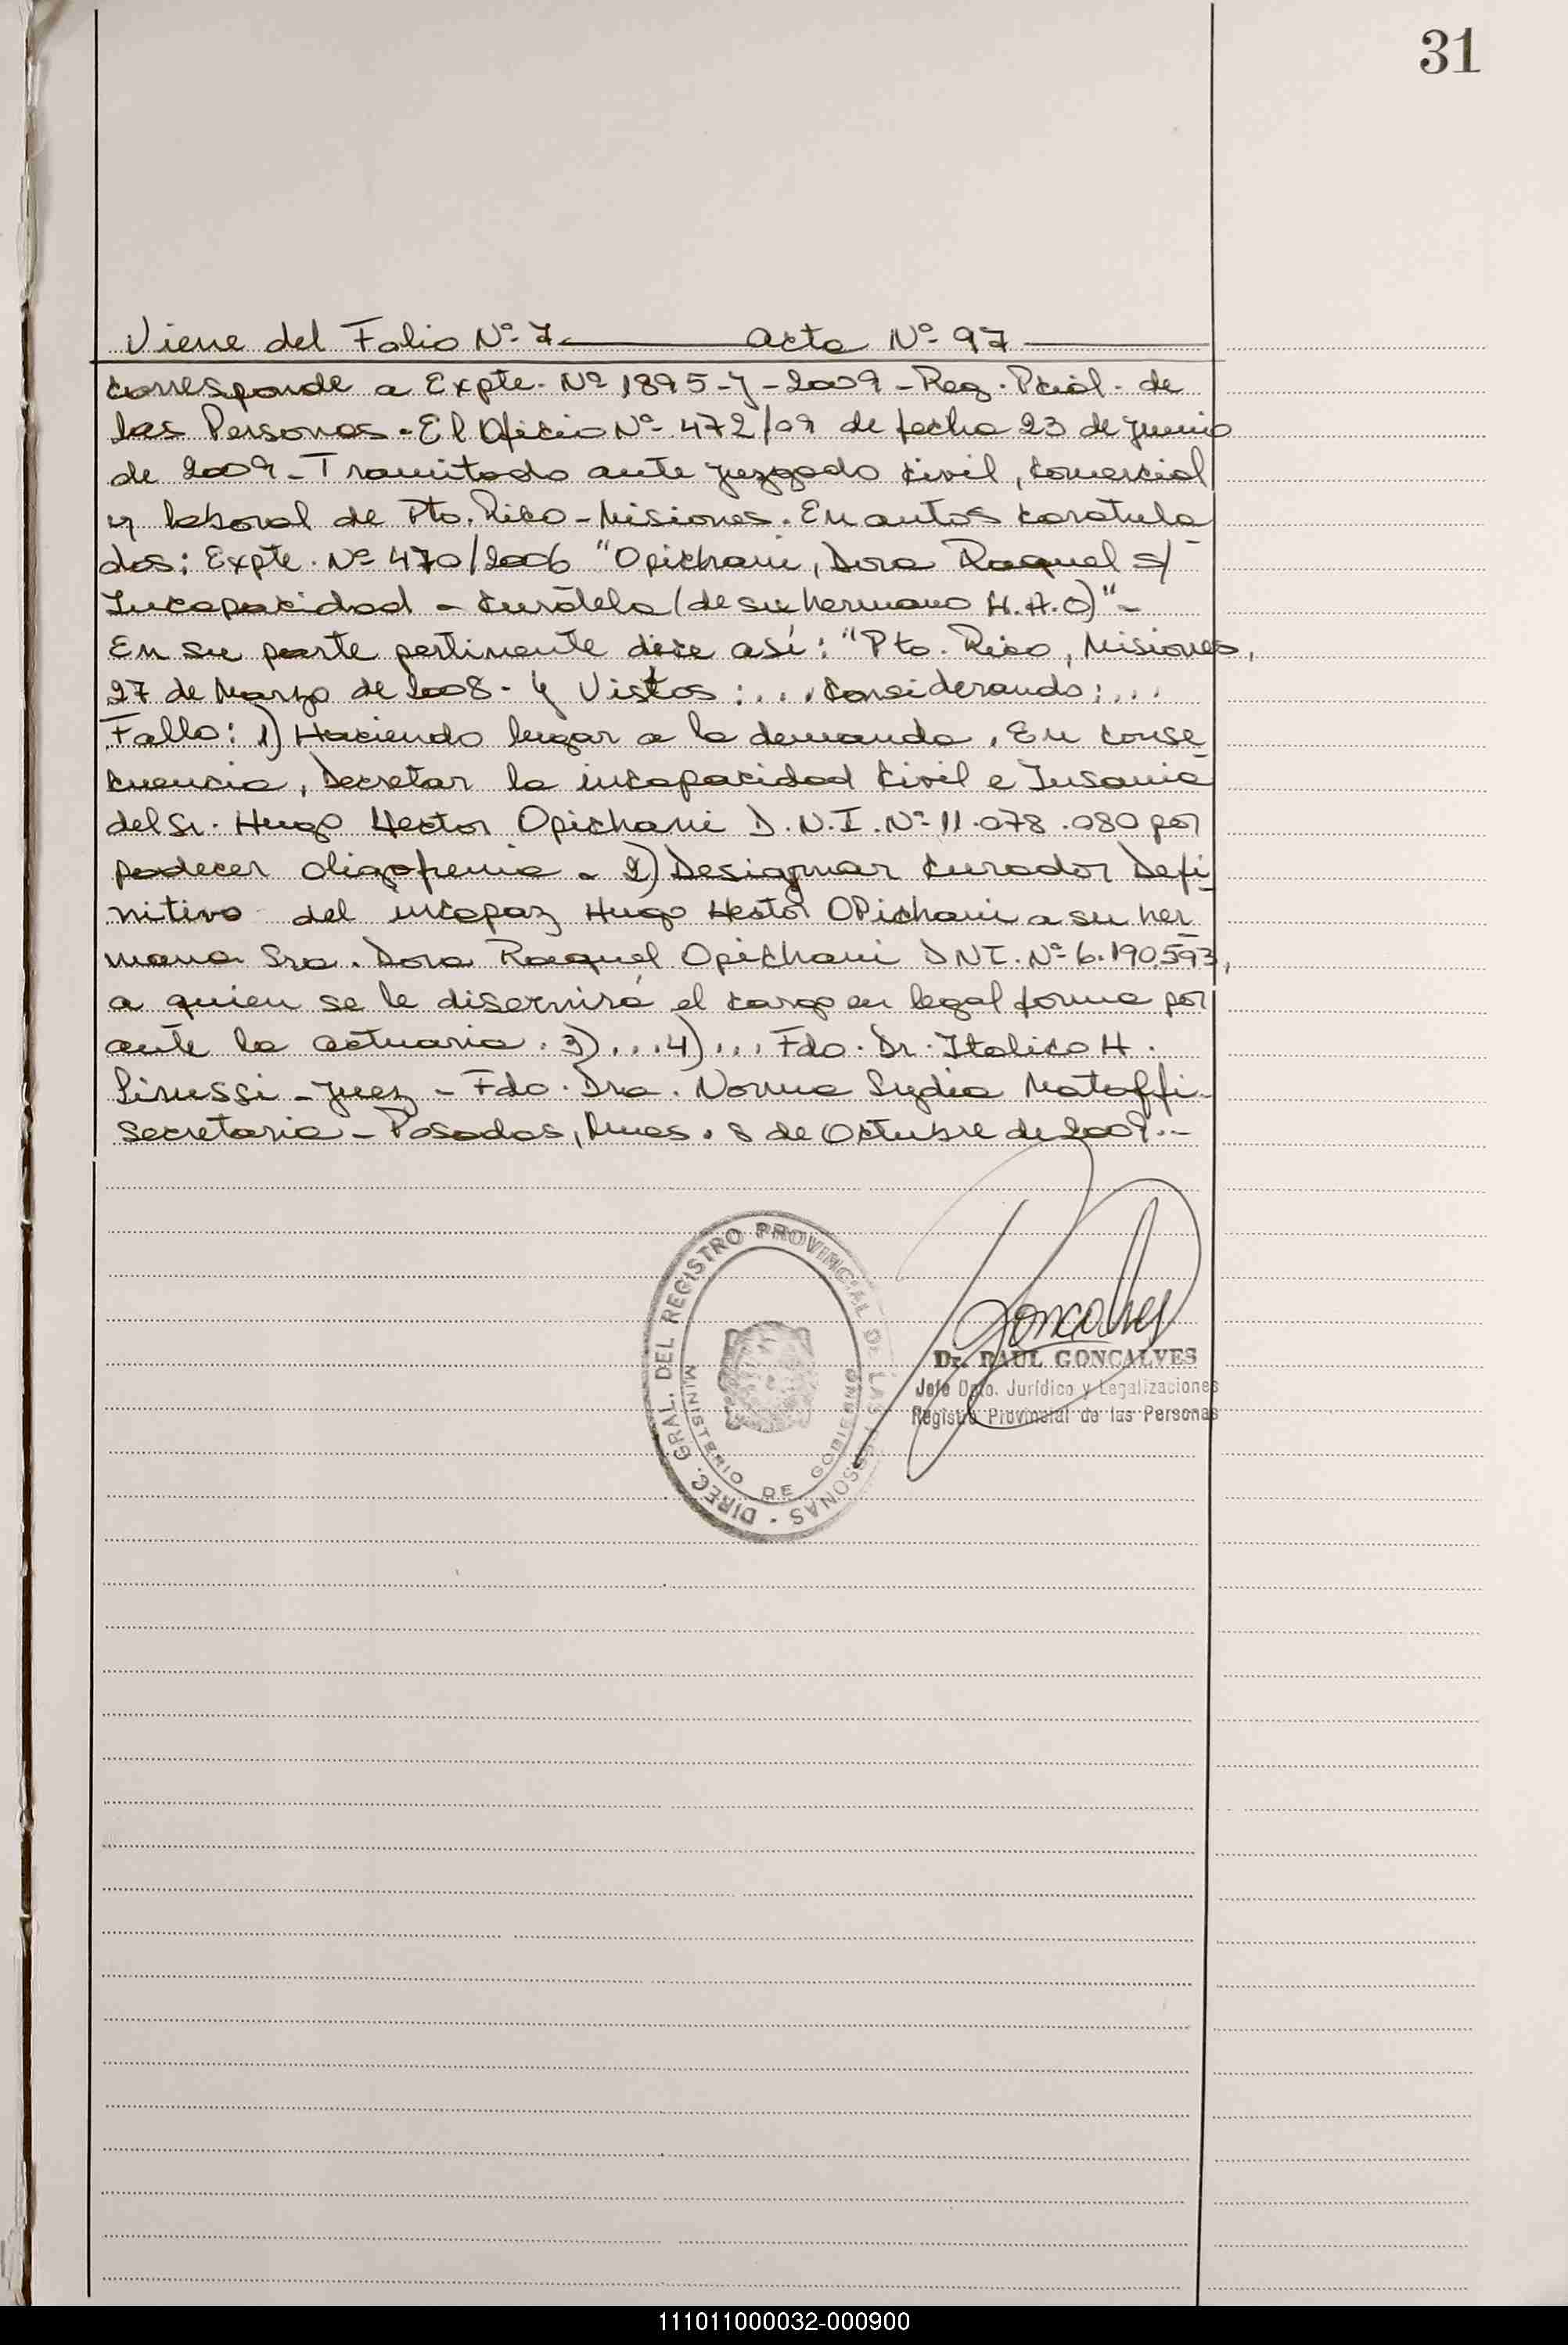 31
Viene del Folio Nº 7 — Acta Nº 97 —
corresponde a Expte. Nº 1895-J-2009 - Reg. Pcial. de
las Personas. El Oficio Nº 472/09 de fecha 23 de junio
de 2009 - Tramitado ante juzgado civil, comercial
y laboral de Pto. Rico - Misiones. En autos caratula
dos: Expte. Nº 470/2006 "Opichani, Dora Raquel s/
Incapacidad - Curátela (de su hermano H.A.O)" -
En su parte pertinente dice así: "Pto. Rico, Misiones,
27 de Marzo de 2008 - Y Vistos: ... Considerando: ...
Fallo: 1) Haciendo lugar a la demanda. En conse
cuencia, Decretar la incapacidad Civil e Insania
del Sr. Hugo Hector Opichani D.N.I. Nº 11.078.080 por
padecer oligofrenia. 2) Designar Curador Defi
nitivo del incapaz Hugo Hector OPichani a su her
mana Sra. Dora Raquel Opichani DNI. Nº 6.190.593,
a quien se le discernirá el cargo en legal forma por
ante la actuaria. 3) ... 4) ... Fdo. Dr. Italico H.
- Juez - Fdo. Dra. Norma Lydia
secretaria - Posadas, Mnes. 8 de Octubre de 2009.-
DIREC. GRAL. DEL REGISTRO PROVINCIAL DE LAS PERSONAS
MINISTERIO DE GOBIERNO
Goncalves
Dr. RAUL GONCALVES
Jefe Dpto. Jurídico y Legalizaciones
Registro Provincial de las Personas
111011000032-000900